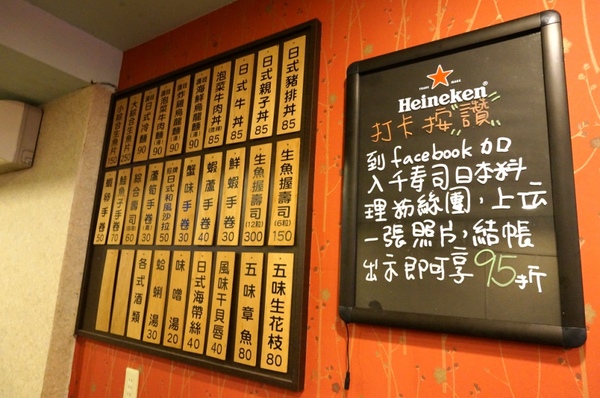 日式豬排丼 85
日式親子丼 85
日式牛丼 85
泡菜牛肉丼 85
海鮮烏龍麵 90
日式冷麵 90
生魚握壽司 (6粒) 150
生魚握壽司 (12粒) 300
鮮蝦手卷 30
蝦蘆手卷 40
蟹味手卷 30
日式和風沙拉 50
蘆筍手卷 30
綜合壽司 60
手卷 70
蝦卵手卷 50
五味生花枝 80
五味章魚 80
風味干貝唇 40
日式海帶絲 40
味噌湯 20
蛤蜊湯 30
各式酒類
Heineken
打卡按讚
到facebook加
入千壽司日本料
理粉絲團，上云
一張照片，結帳
出示即可享95折